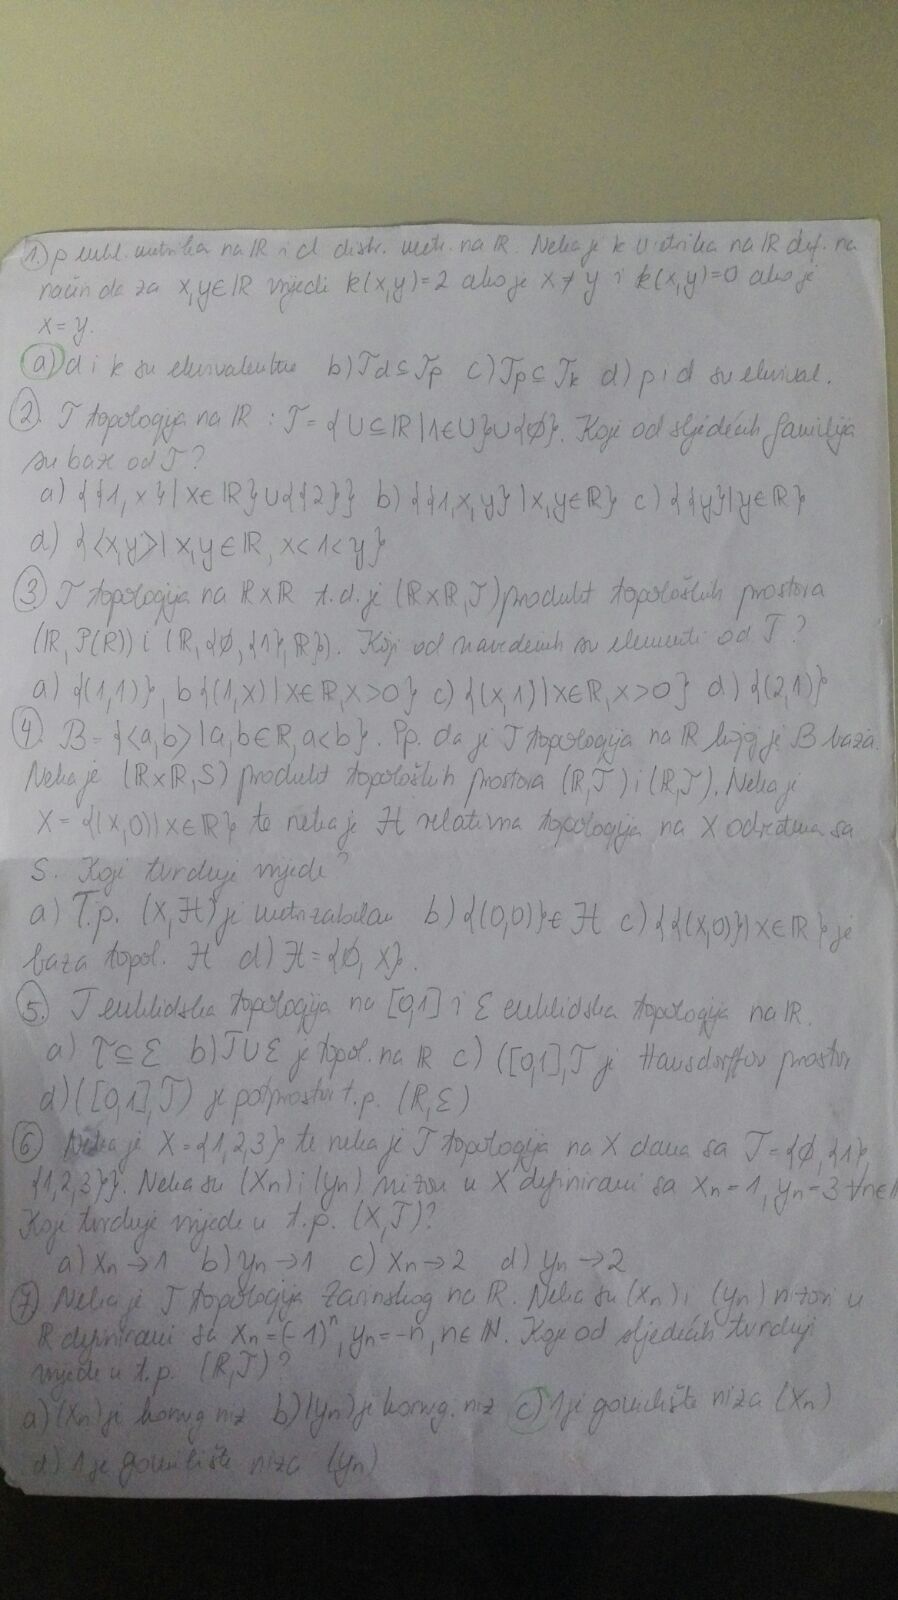 1. p eukl. metrika na ℝ i d diskr. metr. na ℝ. Neka je k metrika na ℝ def. na
način da za x,y∈ℝ vrijedi k(x,y)=2 ako je x≠y i k(x,y)=0 ako je
x=y.
a) d i k su ekvivalentne b) Td⊆Tp c) Tp⊆Tk d) p i d su ekvival.
2. T topologija na ℝ : T={U⊆ℝ|1∈U}∪{∅}. Koje od sljedećih familija
su baze od T?
a) {{1,x}|x∈ℝ}∪{{2}} b) {{1,x,y}|x,y∈ℝ} c) {{y}|y∈ℝ}
d) {<x,y>|x,y∈ℝ, x<1<y}
3 T topologija na ℝ×ℝ t.d. je (ℝ×ℝ,T) produkt topoloških prostora
(ℝ,P(ℝ)) i (ℝ,{∅,{1},ℝ}). Koji od navedenih su elementi od T?
a) {(1,1)}, b {(1,x)|x∈ℝ,x>0} c) {(x,1)|x∈ℝ,x>0} d) {(2,1)}
4. B={<a,b>|a,b∈ℝ,a<b}. Pp. da je T topologija na ℝ kojoj je B baza.
Neka je (ℝ×ℝ,S) produkt topoloških prostora (ℝ,T) i (ℝ,T). Neka je
X={(x,0)|x∈ℝ} te neka je H relativna topologija na X određena sa
S. Koje tvrdnje vrijede?
a) T.p. (X,H) je metrizabilan b) {(0,0)}∈H c) {{(x,0)}|x∈ℝ} je
baza topol. H d) H={∅,X}.
5. T euklidska topologija na [0,1] i Ɛ euklidska topologija na ℝ.
a) T⊆Ɛ b) T∪Ɛ je topol. na ℝ c) ([0,1],T je Hausdorffov prostor
d) ([0,1],T) je potprostor t.p. (ℝ,Ɛ)
6 Neka je X={1,2,3} te neka je T topologija na X dana sa T={∅,{1},
{1,2,3}}. Neka su (xn) i (yn) nizovi u X definirani sa xn=1, yn=3 ∀n∈ℕ
Koje tvrdnje vrijede u t.p. (X,T)?
a) xn→1 b) yn→1 c) xn→2 d) yn→2
7 Neka je T topologija Zariskog na ℝ. Neka su (xn) i (yn) nizovi u
ℝ definirani sa xn=(-1)ⁿ, yn=-n, n∈ℕ. Koje od sljedećih tvrdnji
vrijede u t.p. (ℝ,T)?
a) (xn) je konvg. niz b) (yn) je konvg. niz c) 1 je gomilište niza (xn)
d) 1 je gomilište niza (yn)